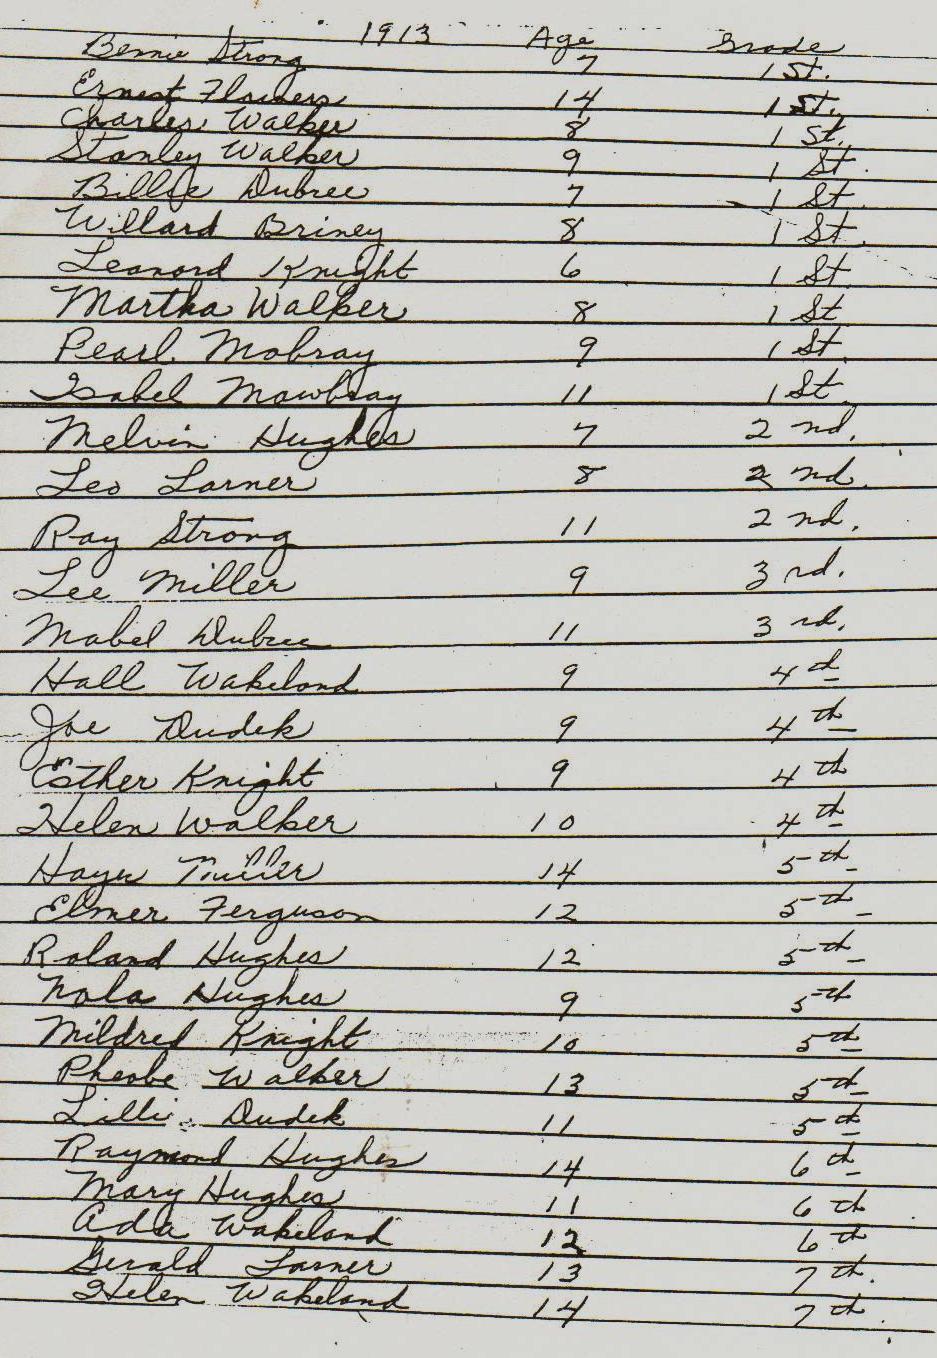 1913 Age Grade
Bennie Strong 7 1 St.
Ernest Flowers 14 1 St.
Charles Walker 8 1 St.
Stanley Walker 9 1 St.
Billie Dubree 7 1 St.
Willard Briney 8 1 St.
Leonord Knight 6 1 St.
Martha Walker 8 1 St
Pearl Mobray 9 1 St.
Isabel Mowbray 11 1 St.
Melvin Hughes 7 2 nd.
Leo Larner 8 2 nd.
Ray Strong 11 2 nd.
Lee Miller 9 3 rd.
Mabel Dubree 11 3 rd.
Hall Wakeland 9 4 d
Joe Dudek 9 4 th
Esther Knight 9 4 th
Helen Walker 10 4 th
14 5 th
Elmer Ferguson 12 5 th
Roland Hughes 12 5 th
Nola Hughes 9 5 th
Mildred Knight 10 5 th
Pheobe Walker 13 5 th
Lillie Dudek 11 5 th
Raymond Hughes 14 6 th
Mary Hughes 11 6 th
Ada Wakeland 12 6 th
Gerald Larner 13 7 th.
Helen Wakeland 14 7 th.